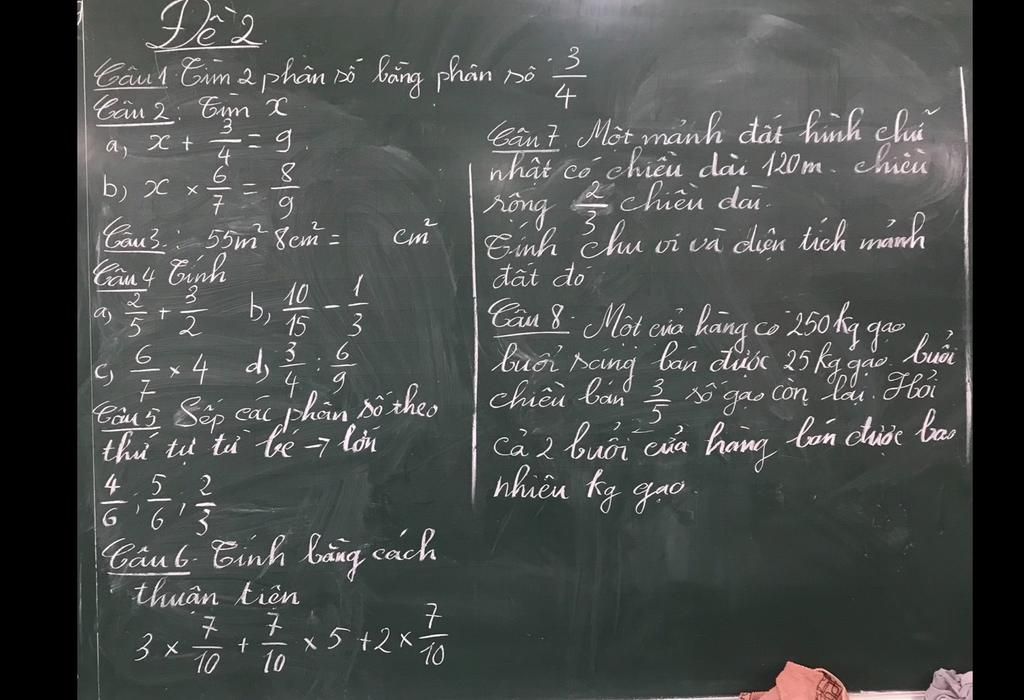 Đề 2
Câu 1 Tìm 2 phân số bằng phân số 3/4
Câu 2: Tìm x
a, x + 3/4 = 9
b, x × 6/7 = 8/9
Câu 3: 55m² 8cm² = cm²
Câu 4 Tính
a, 2/5 + 3/2 b, 10/15 - 1/3
c, 6/7 × 4 d, 3/4 : 6/9
Câu 5 Sếp các phân số theo
thứ tự từ bé → lớn
4/6 ; 5/6 ; 2/3
Câu 6. Tính bằng cách
thuân tiên
3 × 7/10 + 7/10 × 5 + 2 × 7/10
Câu 7. Một mảnh đất hình chữ
nhật có chiều dài 120m. chiều
rông 2/3 chiều dài.
Tính chu vi và diện tích mảnh
đất đó
Câu 8. Một cửa hàng có 250 kg gạo
buổi sang bán được 25 kg gạo. buổi
chiều bán 3/5 số gạo còn lại. Hỏi
cả 2 buổi cửa hàng bán được bao
nhiêu kg gạo.